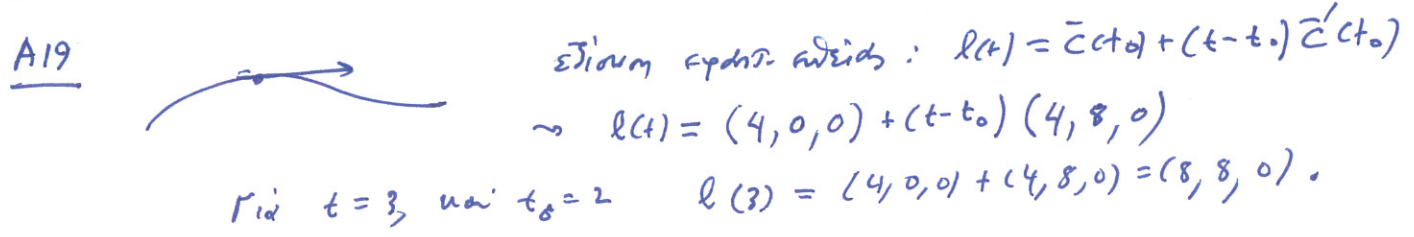 A19
εξίσωση εφαπτ. ευθείας : l(t) = c̄(t₀) + (t-t₀) c̄'(t₀)
⇝ l(t) = (4,0,0) + (t-t₀) (4,8,0)
Για t = 3, και t₀ = 2 l(3) = (4,0,0) + (4,8,0) = (8,8,0).